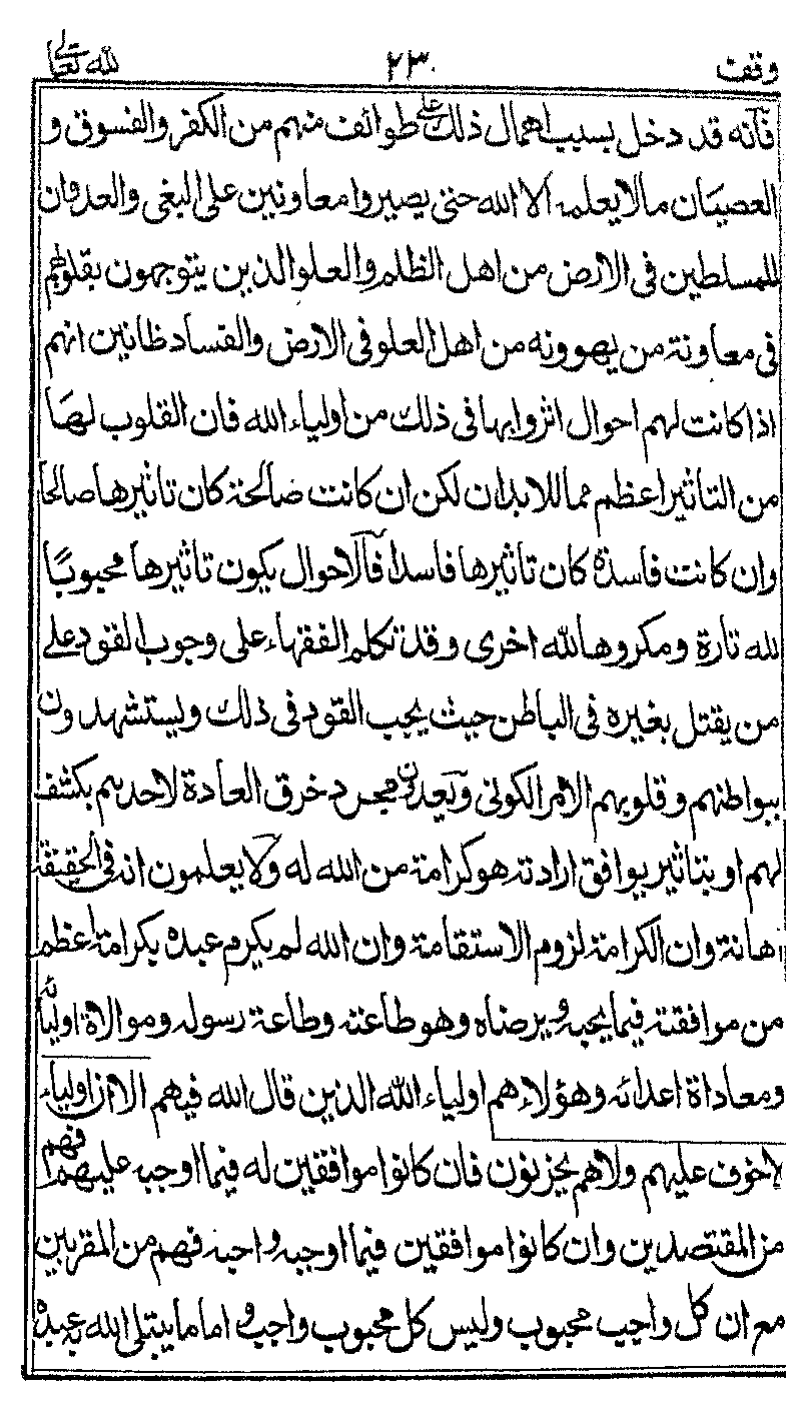 وقف ٢٣٠ لله تعالى
فآنه قد دخل بسبب اهمال ذلك على طوائف منهم من الكفر والفسوق و
العصيان مالا يعلمه الا الله حتى يصيروا معاونين على البغي والعدوان
للمسلطين في الارض من اهل الظلم والعلو الذين يتوجهون بقلوبهم
في معاونة من يهوونه من اهل العلو في الارض والفساد ظانين انهم
اذا كانت لهم احوال اثروا بها في ذلك من اولياء الله فان القلوب لها
من التاثير اعظم مما للابدان لكن ان كانت صالحة كان تاثيرها صالحا
وان كانت فاسدة كان تاثيرها فاسدا فالاحوال يكون تاثيرها محبوبًا
لله تارة ومكروها لله اخرى وقد تكلم الفقهاء على وجوب القود على
من يقتل بغيره في الباطن حيث يجب القود في ذلك ويستشهدون
ببواطنهم وقلوبهم الامر الكوني ويعدون مجرد خرق العادة لاحدهم بكشف
لهم او بتاثير يوافق ارادته هو كرامة من الله له ولا يعلمون انه في الحقيقة
اهانة وان الكرامة لزوم الاستقامة وان الله لم يكرم عبده بكرامة اعظم
من موافقته فيما يحبه ويرضاه وهو طاعته وطاعة رسوله وموالاة اوليائه
ومعاداة اعدائه وهؤلاء هم اولياء الله الذين قال الله فيهم الا ان اولياء
لا خوف عليهم ولا هم يحزنون فان كانوا موافقين له فيما اوجبه عليهم فهم
من المقتصدين وان كانوا موافقين فيما اوجبه واحبه فهم من المقربين
مع ان كل واجب محبوب وليس كل محبوب واجب و اما ما يبتلي الله به عبده